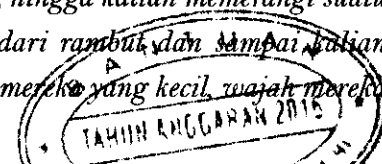 , hingga kalian memerangi suatu
dari rambut dan sampai kalian
mereka yang kecil, wajah mereka
TAHUN ANGGARAN 2015